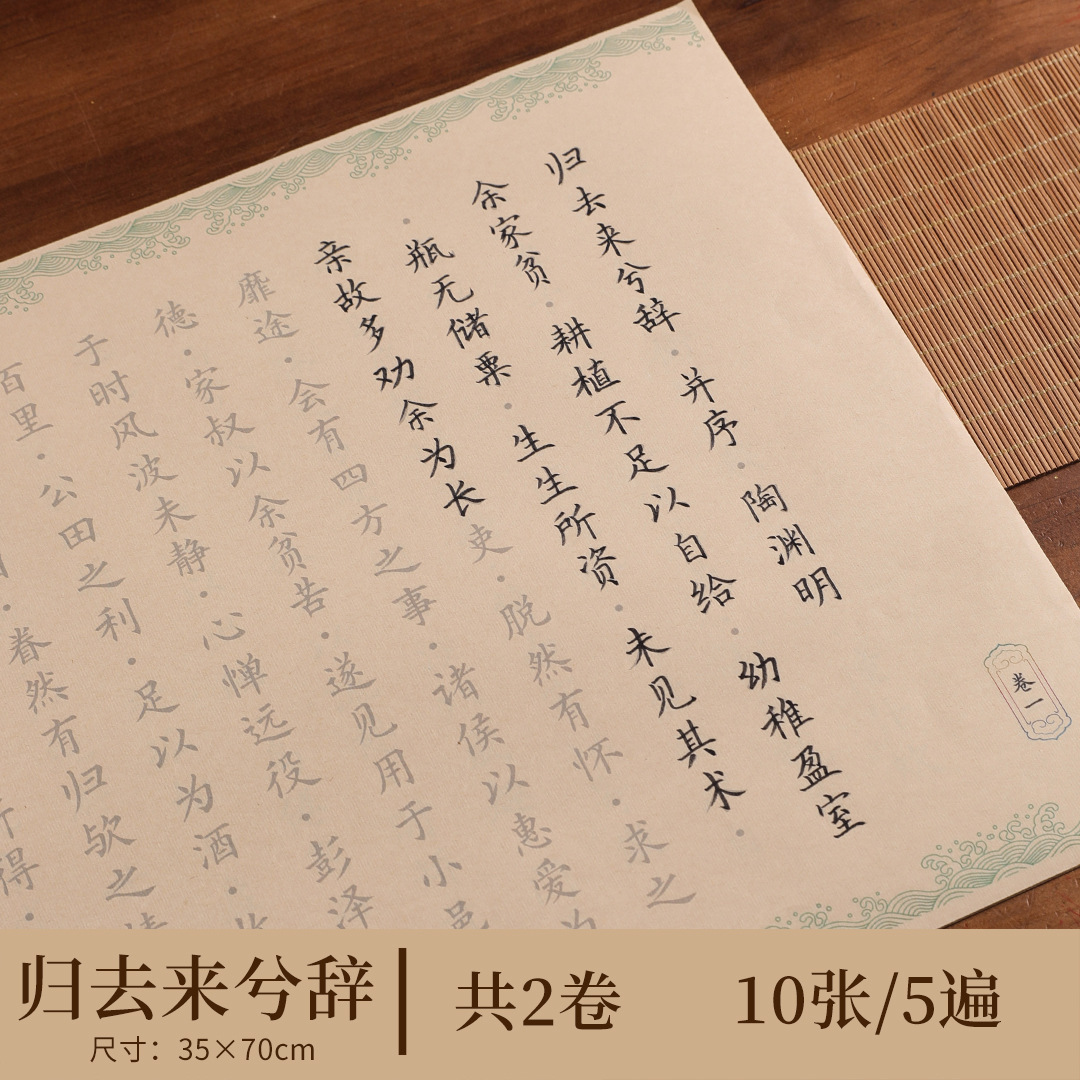 归去来兮辞·并序·陶渊明
余家贫·耕植不足以自给·幼稚盈室
·瓶无储粟·生生所资·未见其术·
亲故多劝余为长吏·脱然有怀·求之
靡途·会有四方之事·诸侯以惠爱为
德·家叔以余贫苦·遂见用于小邑
于时风波未静·心惮远役·彭泽
百里·公田之利·足以为酒·
·眷然有归欤之
得·
卷一
归去来兮辞
尺寸：35×70cm
共2卷
10张/5遍